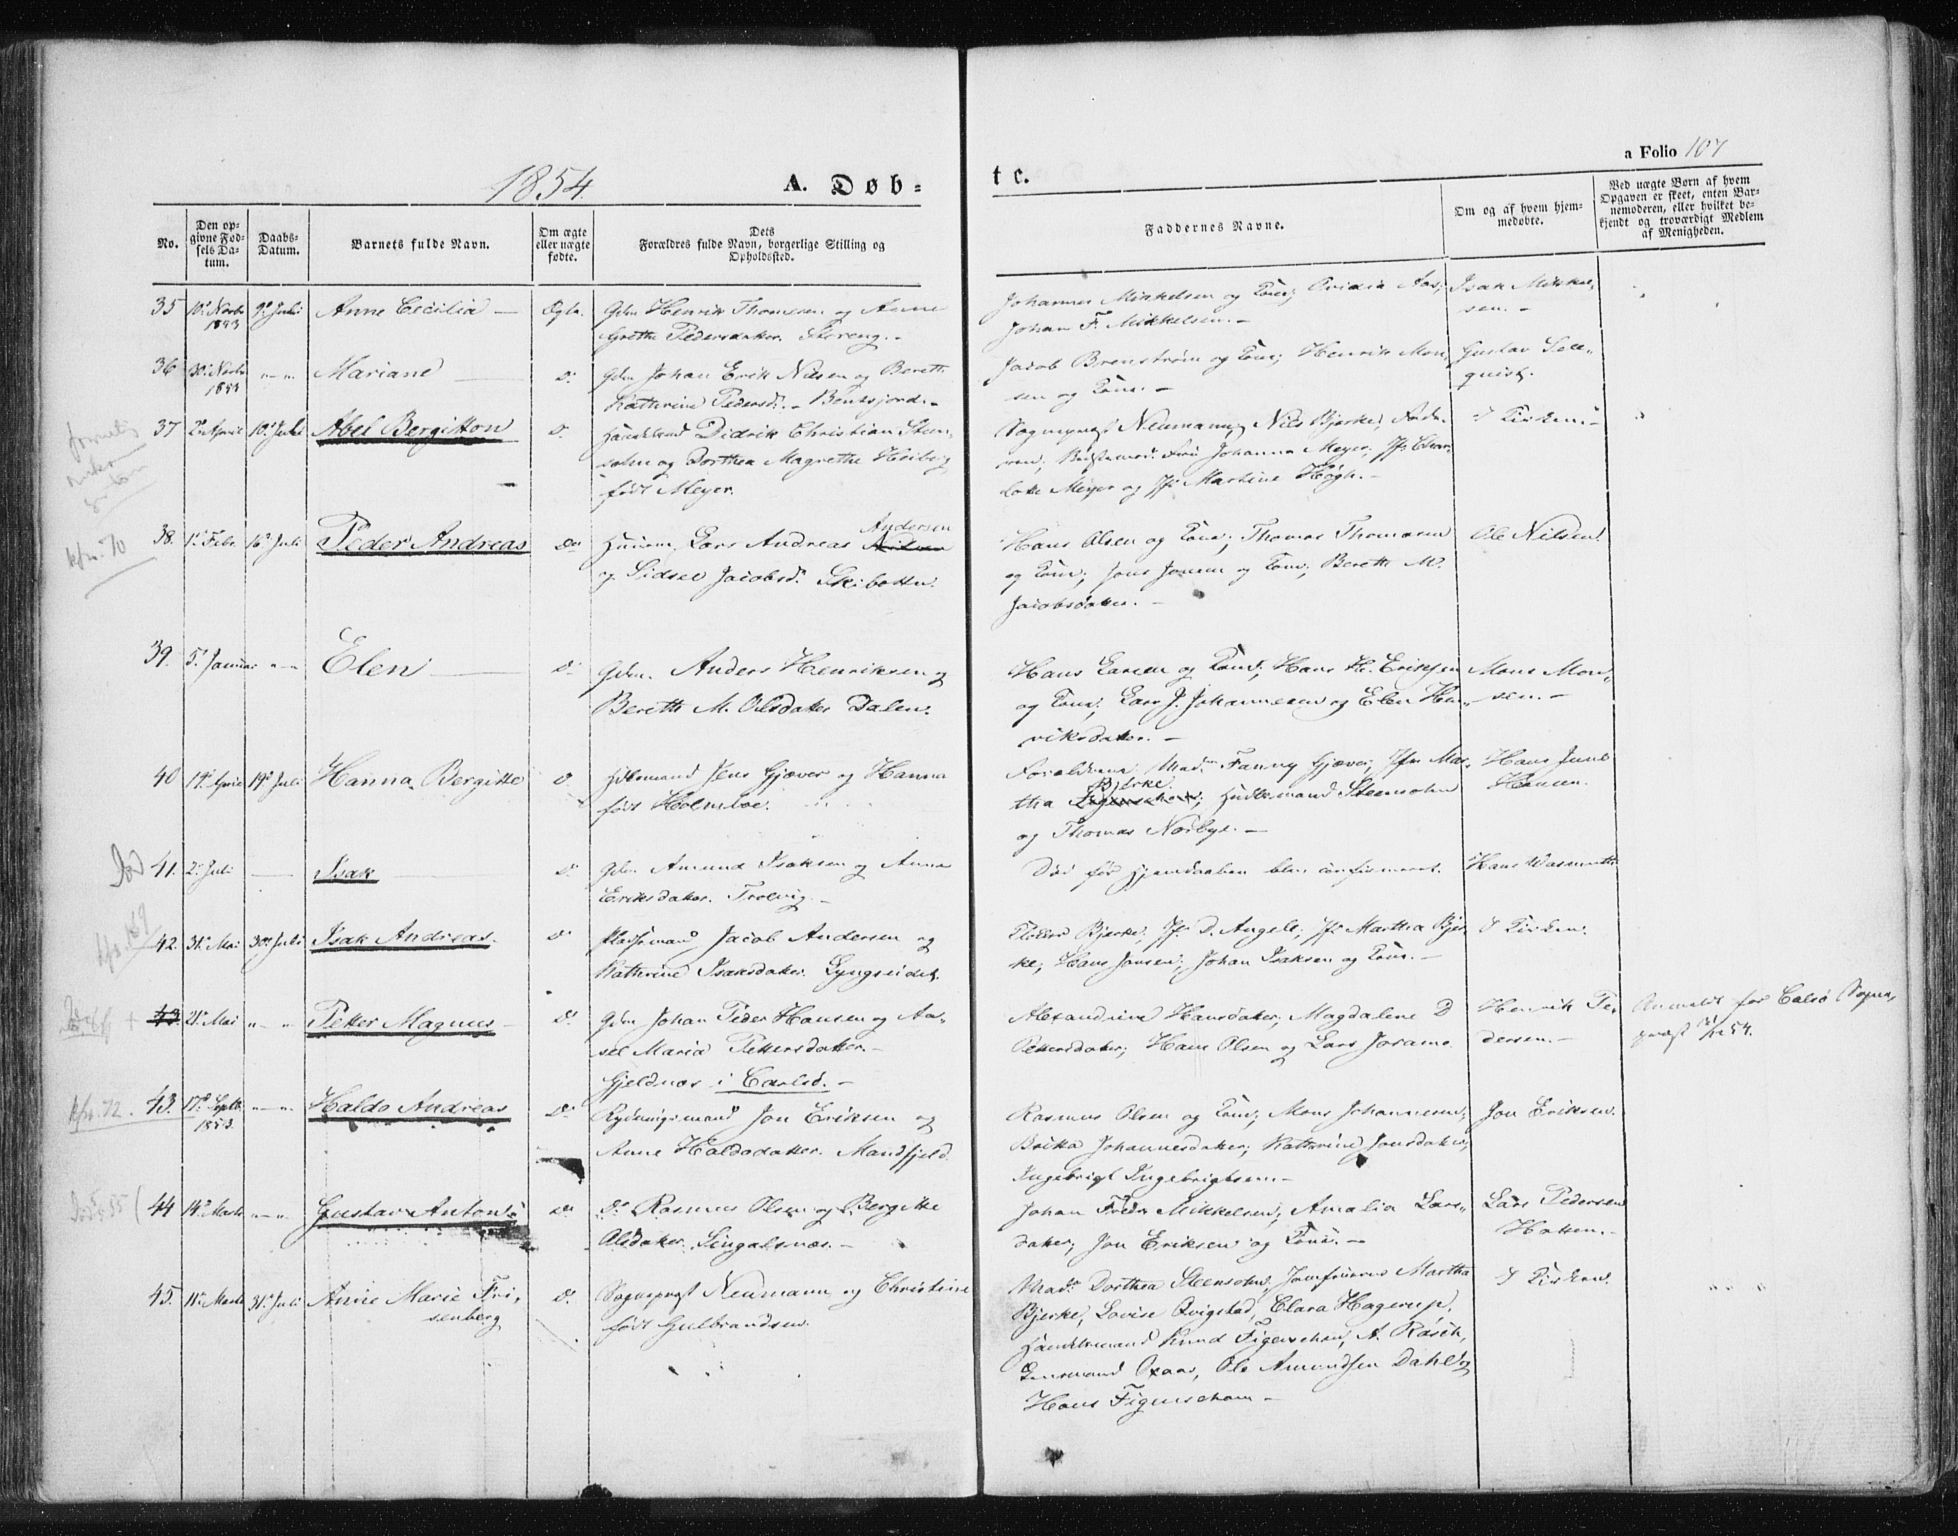 1854.
A. Døb-
te.
a Folio 107
No.
Den op-
givne Fød-
sels Da-
tum.
Daabs-
Datum.
Barnets fulde Navn.
Om ægte
eller uægte
fødte.
Dets
Forældres fulde Navn, borgerlige Stilling og
Opholdssted.
Faddernes Navne.
Om og af hvem hjem-
medøbte.
Ved uægte Børn af hvem
Opgaven er skeet, enten Bar-
nemoderen, eller hvilket be-
kjendt og troværdigt Medlem
af Menigheden.
35 10 Novbr 9 Juli Anne Cecilia Ægte. Gdm Henrik Thomesen og Anne
1853
Grethe Pedersdatter.
Johannes Mikkelsen og Kone; Ovidia Aas;
Johan F. Mikkelsen.
Isak Mikkel-
sen.
36 30 Novbr " " Mariane D. Gdm Johan Erik Nilsen og Berett
1853
Kathrine Pedersd. Bentsjord.
Jacob Brenstrøm og Kone; Henrik Mon-
sen og Kone.
Gustav
quist.
37 2 April 10 Juli Abel Bergitton D. Handelsmd Didrik Christian Steen-
sohn og Dorthea Magrethe Heiberg
født Meyer.
Sogneprest Neumann, Nils Bjerke, Fade-
ren; Johanna Meyer, Jfr Char-
lotte Meyer og Jfr Martine Høgh.
I Kirken
38. 1 Febr 16 Juli Peder Andreas Do Huusm. Lars Andreas Nilsen
Andersen
og Sidsel Jacobsd. Skibotten.
Hans Olsen og Kone; Thomas Thomasen
og Kone; Jens Jensen og Kone; Berette M.
Jacobsdatter.
Ole Nilsen.
39. 5 Januar " " Elen D. Gdm. Anders Henriksen og
Berette M. Olsdatter Dalen.
Hans Larsen og Kone; Hans H. Eriksen
og Kone; Lars J. Johannesen og Elen Hen-
riksdatter.
Mons Mon-
sen.
40 14 April 19 Juli Hanna Bergitte D. Hdlsmand Jens Gjæver og Hanna
født Holmboe.
Forældrene, Mad. Fanny Gjæver, Jfr Mar-
Bjerke.
tha Figenschou; Hndlsmand Steensohn
og Thomas Norbye.
Hans Juul
Hansen.
Død 41. 2 Juli Isak D. Gdm. Amund Isaksen og Anna
Eriksdatter. Trolvig.
Død før Hjemdaaben blev confirmeret.
Hans Wasmuth
42. 31 Mai 30 Juli Isak Andreas. D. Pladsmand Jacob Andersen og
Kathrine Isaksdatter. Lyngseidet.
Bjerke; Jfr D. Angell; Jfr Martha Bjer-
ke; Hans Jansen; Johan Isaksen og Kone.
I Kirken.
43. 21 Mai " " Petter Magnus D. Gdm Johan Peder Hansen og Aa-
sel Maria Pettersdatter.
Gjeldnæs i Carlsø.
Alexandrine Hansdatter; Magdalene D
Pettersdatter; Hans Olsen og Lars Joramo.
Henrik Pe-
dersen.
Anmeldt for Calsø Sogne-
præst 54.
kfr. 72. 43. 17 Septbr " " Haldo Andreas Do Rydningsmand Jon Eriksen og
1853.
Anne Haldodatter. Mandfjeld.
Rasmus Olsen og Kone; Mons Johannesen;
Britha Johannesdatter; Kathrine Jonsdatter;
Ingebrigt Ingebrigtsen.
Jon Eriksen.
44 14 Marts " " Gustav Anton Do Do Rasmus Olsen og Bergitte
Olsdatter. Singalsnæs.
Johan Fredr Mikkelsen; Amalia Lars-
datter; Jon Eriksen og Kone.
Lars Pedersen
Hatten.
45. 11 Marts 31 Juli Anne Marie Fri-
senberg
D. Sogneprest Neumann og Christine
født Gulbrandsen.
Mad. Dorthea Steensohn; Jomfruerne Martha
Bjerke, Lovise Qvigstad, Clara Hagerup,
Handelsmand Knud Figenschou; A. Rasch,
Ole Amundsen Dahl og
Hans Figenschou
I Kirken.